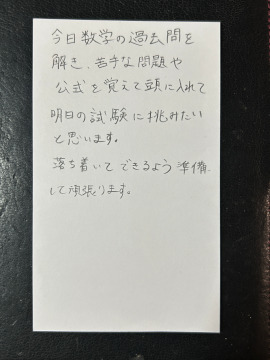 今日数学の過去問を
解き、苦手な問題や
公式を覚えて頭に入れて
明日の試験に挑みたい
と思います。
落ち着いてできるよう準備
して頑張ります。